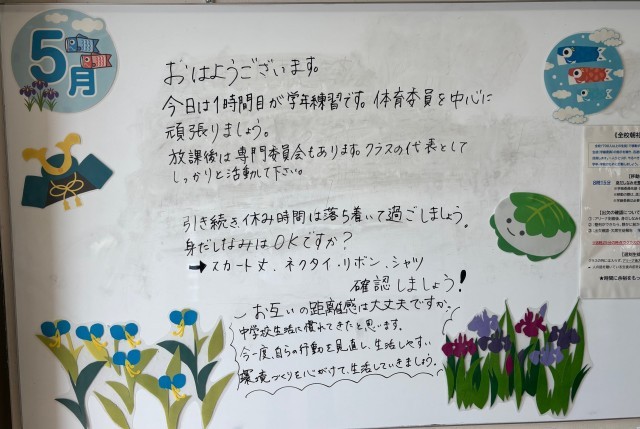 5月
おはようございます。
今日は1時間目が学年練習です。体育委員を中心に
頑張りましょう。
放課後は専門委員会もあります。クラスの代表として
しっかりと活動して下さい。
引き続き、休み時間は落ち着いて過ごしましょう。
身だしなみはOKですか?
→スカート丈、ネクタイ・リボン、シャツ
確認しましょう!
お互いの距離感は大丈夫ですか。
中学校生活に慣れてきたと思います。
今一度、自らの行動を見直し、生活しやすい
環境づくりを心がけて、生活していきましょう。